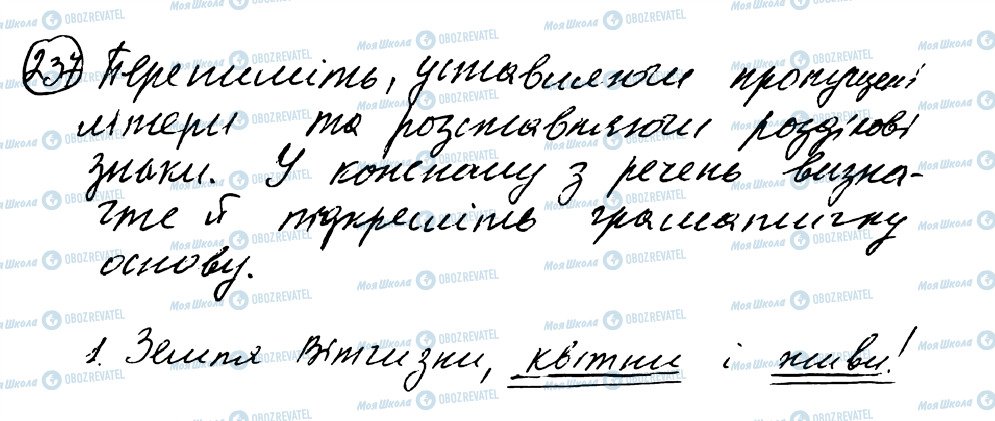 237 Перепишіть, уставляючи пропущені
літери та розставляючи розділові
знаки. У кожному з речень визна-
чте й підкресліть граматичну
основу.
1. Земля Вітчизни, квітни і живи!